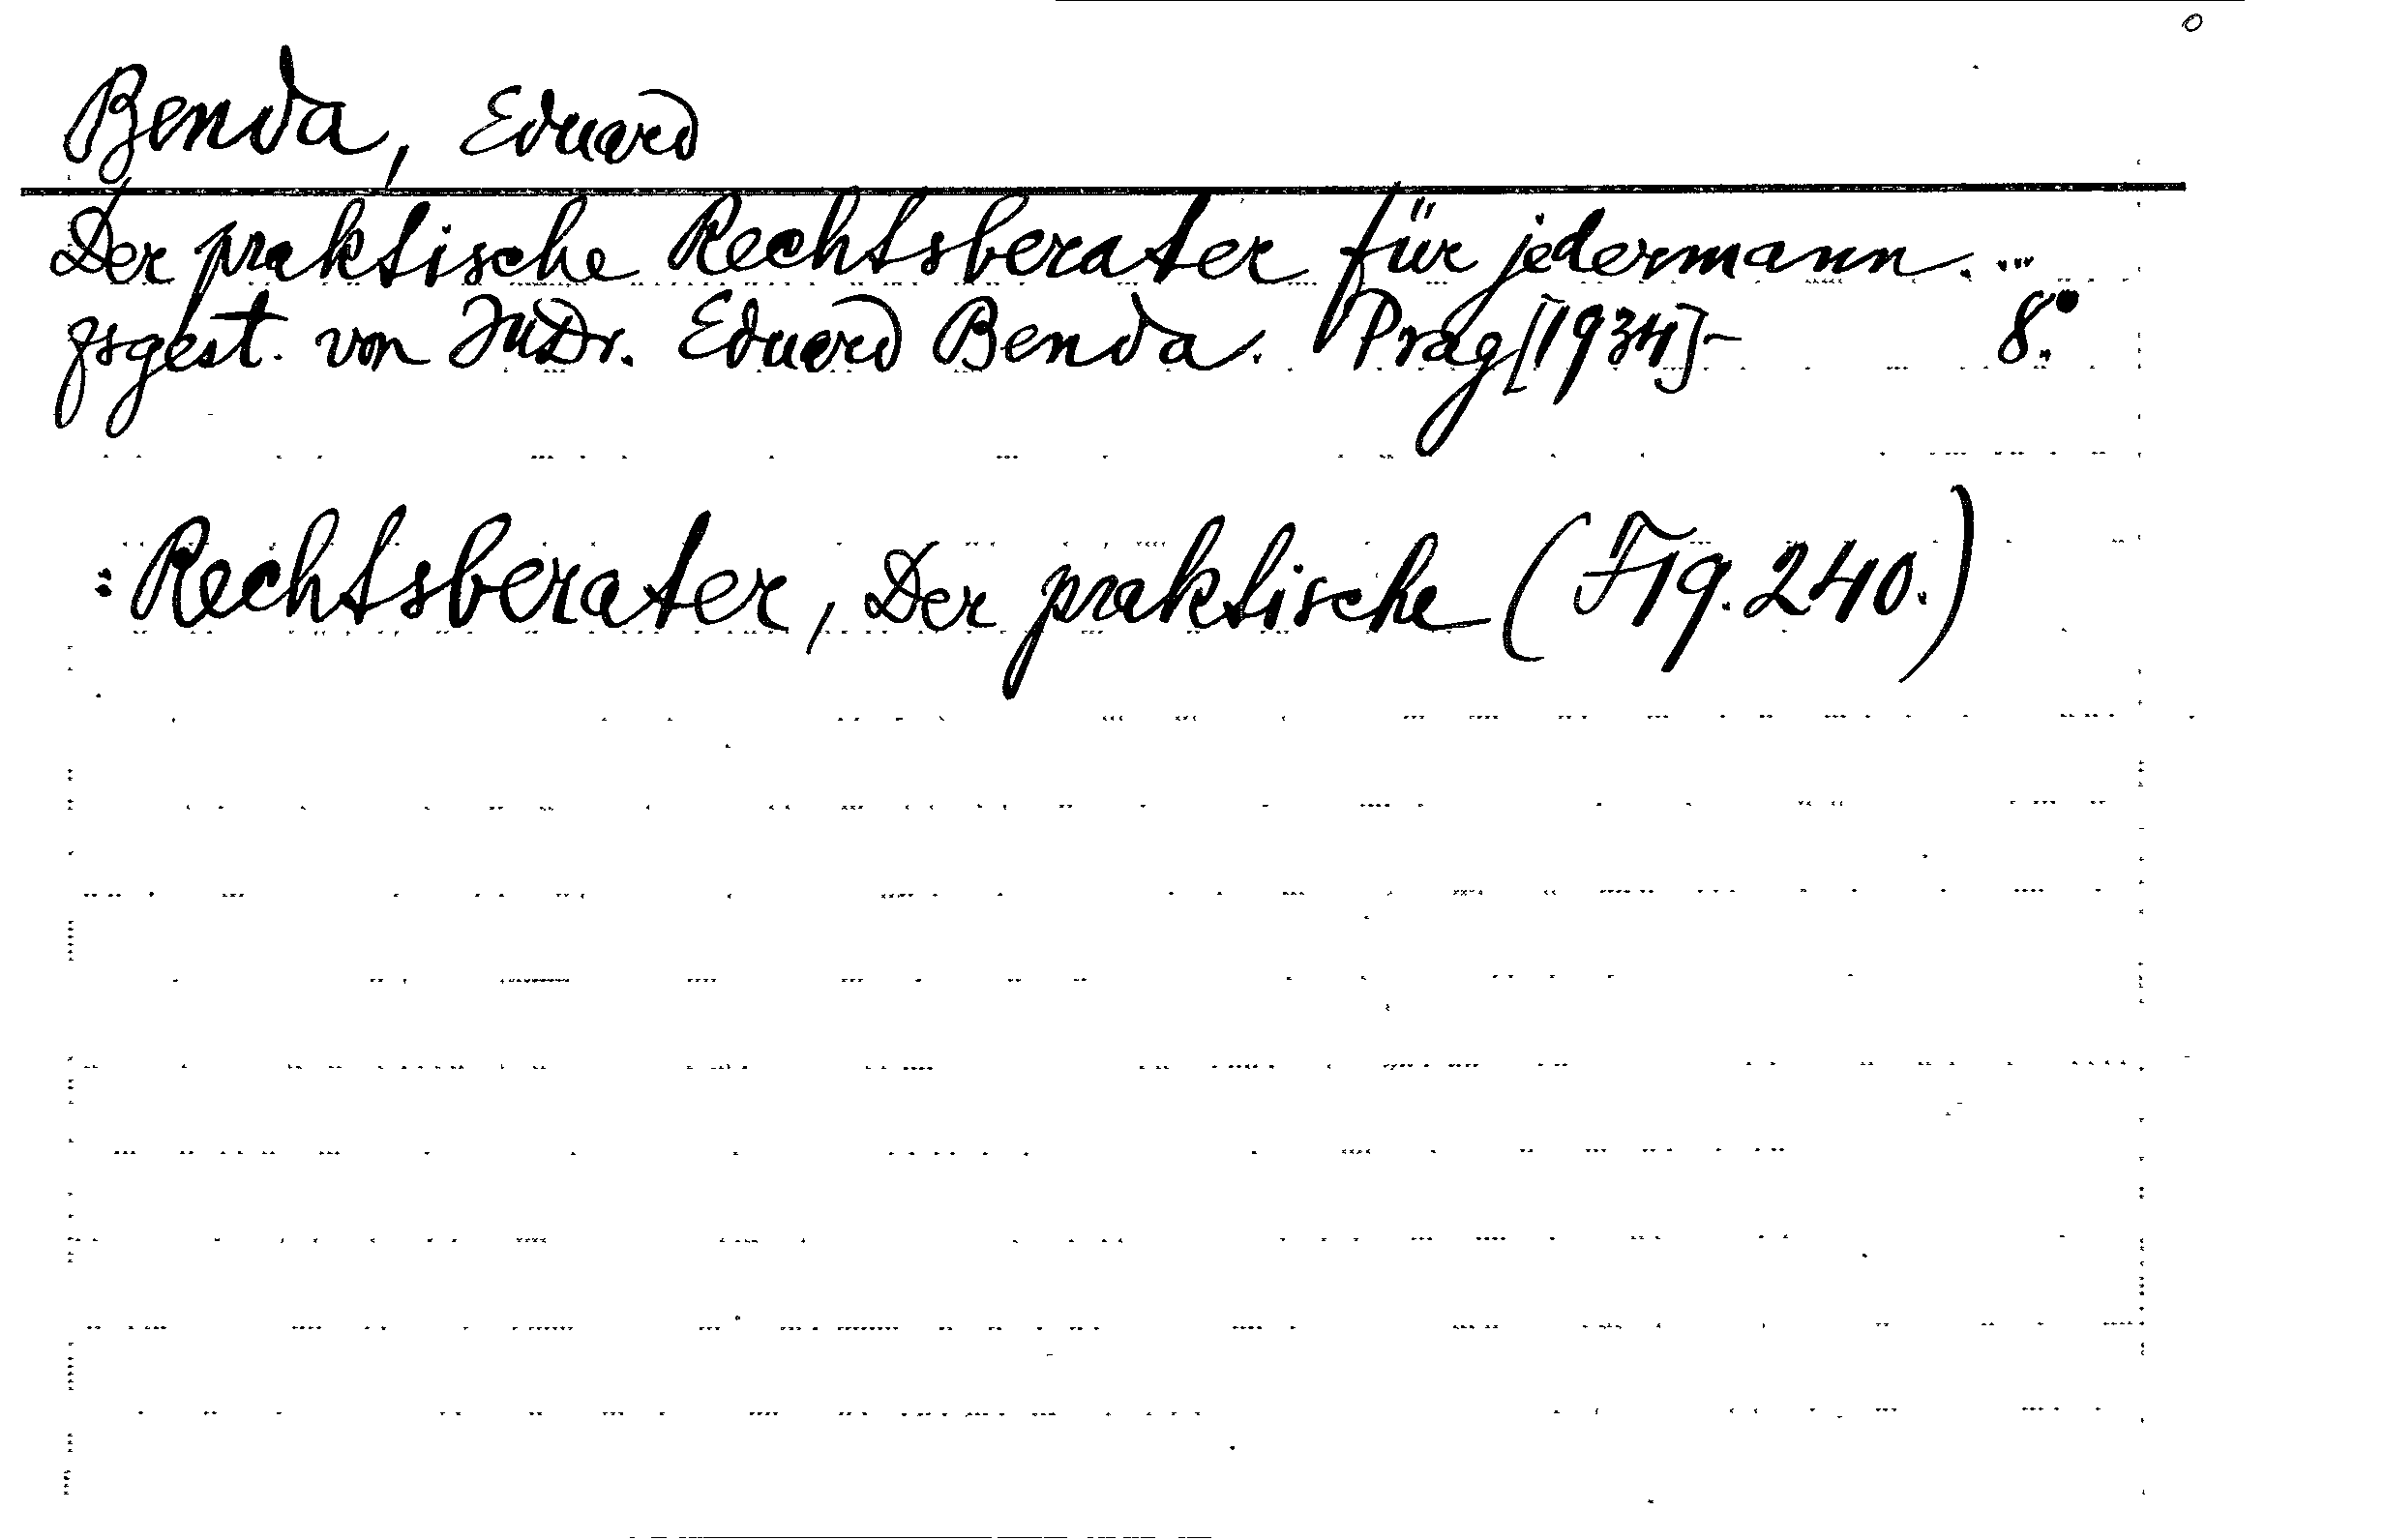 Benda, Eduard
Der praktische Rechtsberater für jedermann. ...
zsgest. von JuDr. Eduard Benda. Prag [1934]- 8°.
: Rechtsberater, Der praktische (Fig. 240.)